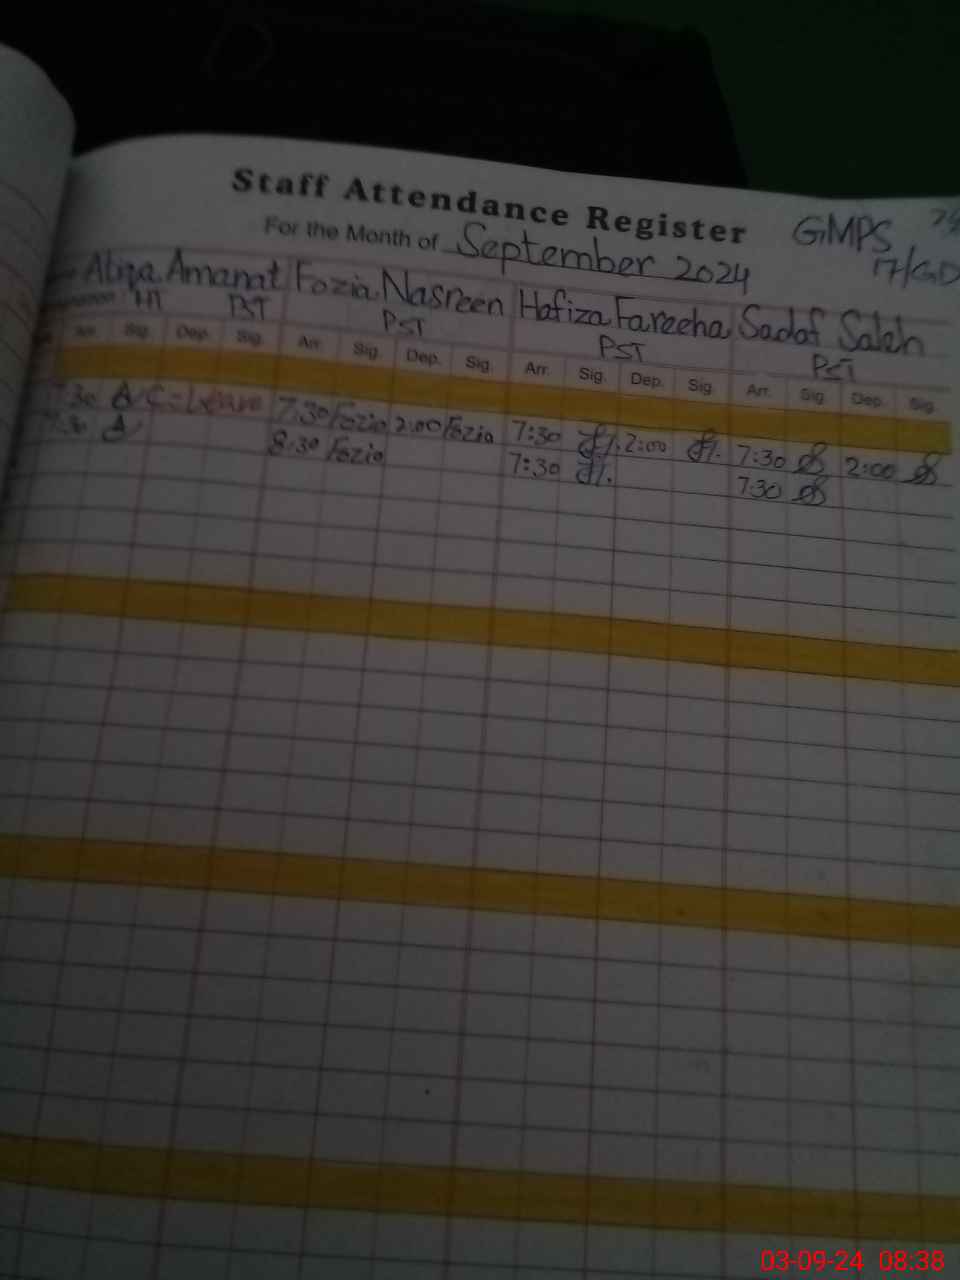 Staff Attendance Register
For the Month of September 2024
GMPS
17/GD
Atiqa Amanat Fozia Nasreen Hafiza Fareeha Sadaf Saleh
HT PST PST PST PST
Arr. Sig. Dep. Sig. Arr. Sig. Dep. Sig. Arr. Sig. Dep. Sig. Arr. Sig. Dep. Sig.
7:30 C-Leave 7:30 Fozia 2:00 Fozia 7:30 2:00 7:30 2:00
7:30 8:30 Fozia 7:30 7:30
03-09-24 08:38